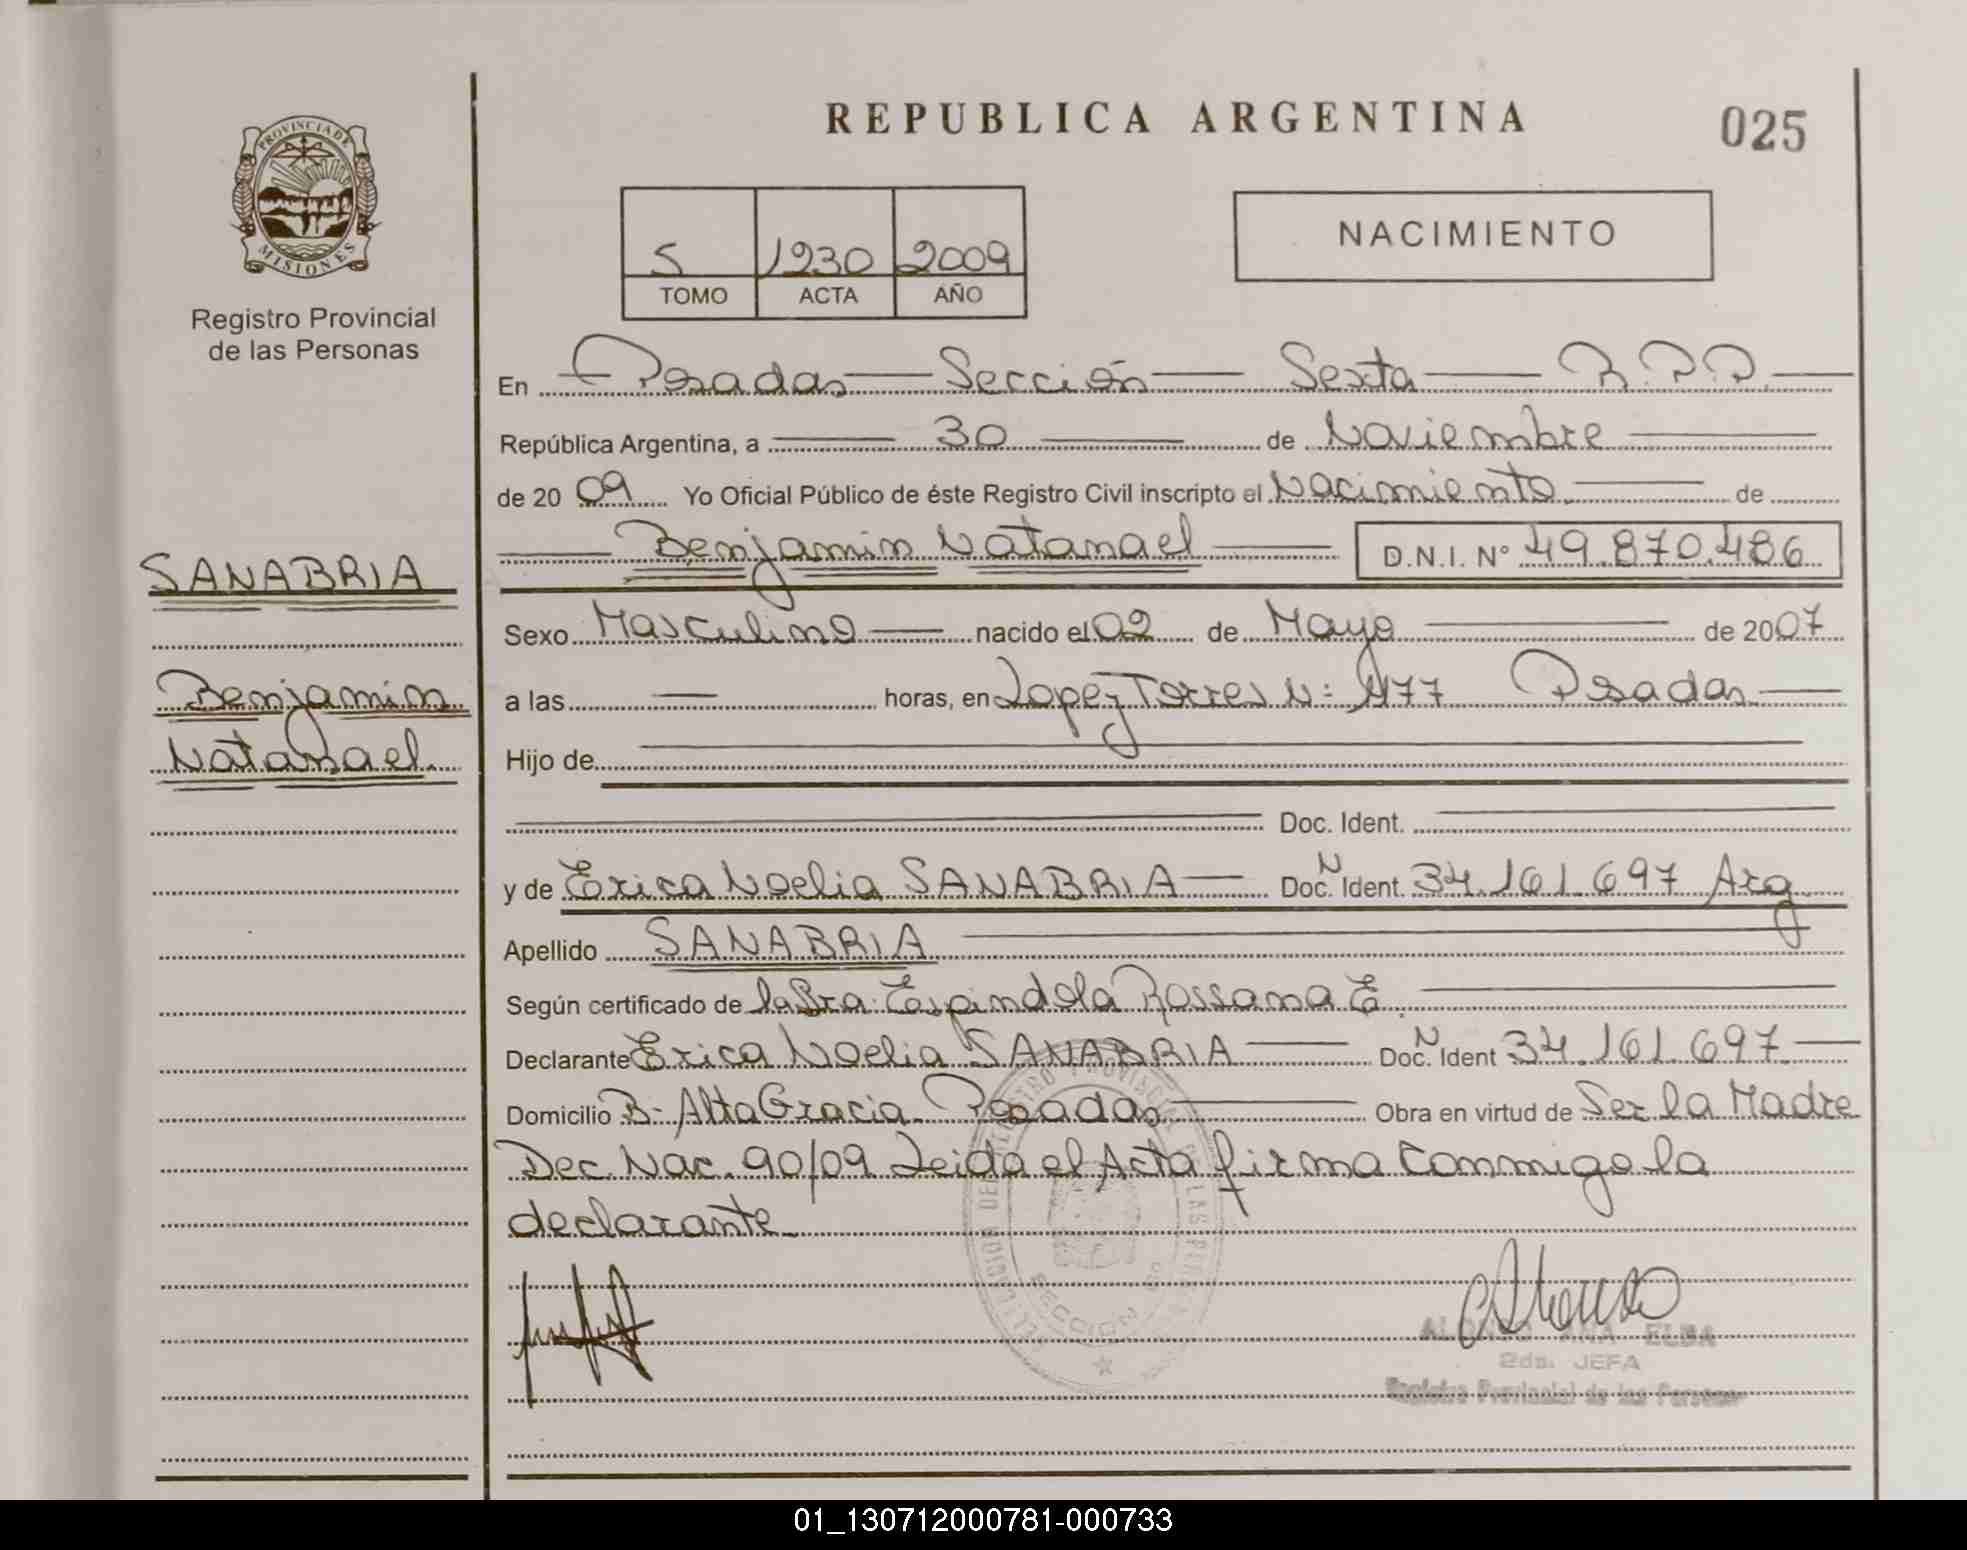 REPUBLICA ARGENTINA
025
PROVINCIA DE
MISIONES
Registro Provincial
de las Personas
5 1230 2009
TOMO ACTA AÑO
NACIMIENTO
En Posadas Sección Sexta R.P.P.
República Argentina, a 30 de Noviembre
de 2009 Yo Oficial Público de éste Registro Civil inscripto el Nacimiento de
Benjamin Natanael D.N.I. N° 49.870.486
SANABRIA
Sexo Masculino nacido el 02 de Mayo de 2007
Benjamin
a las horas, en Lopez Torres N: 1177 Posadas
Natanael
Hijo de
Doc. Ident.
y de Erica Noelia SANABRIA Doc. N Ident. 34.161.697 Arg
Apellido SANABRIA
Según certificado de la Sra. Espindola Rossana E.
Declarante Erica Noelia SANABRIA Doc. N Ident 34.161.697
Domicilio B- Alta Gracia. Posadas Obra en virtud de Ser la Madre
Dec. Nac. 90/09 Leida el Acta firma Conmigo la
declarante
SECCION
ELBA
2da. JEFA
Registro Provincial de las Personas
01_130712000781-000733